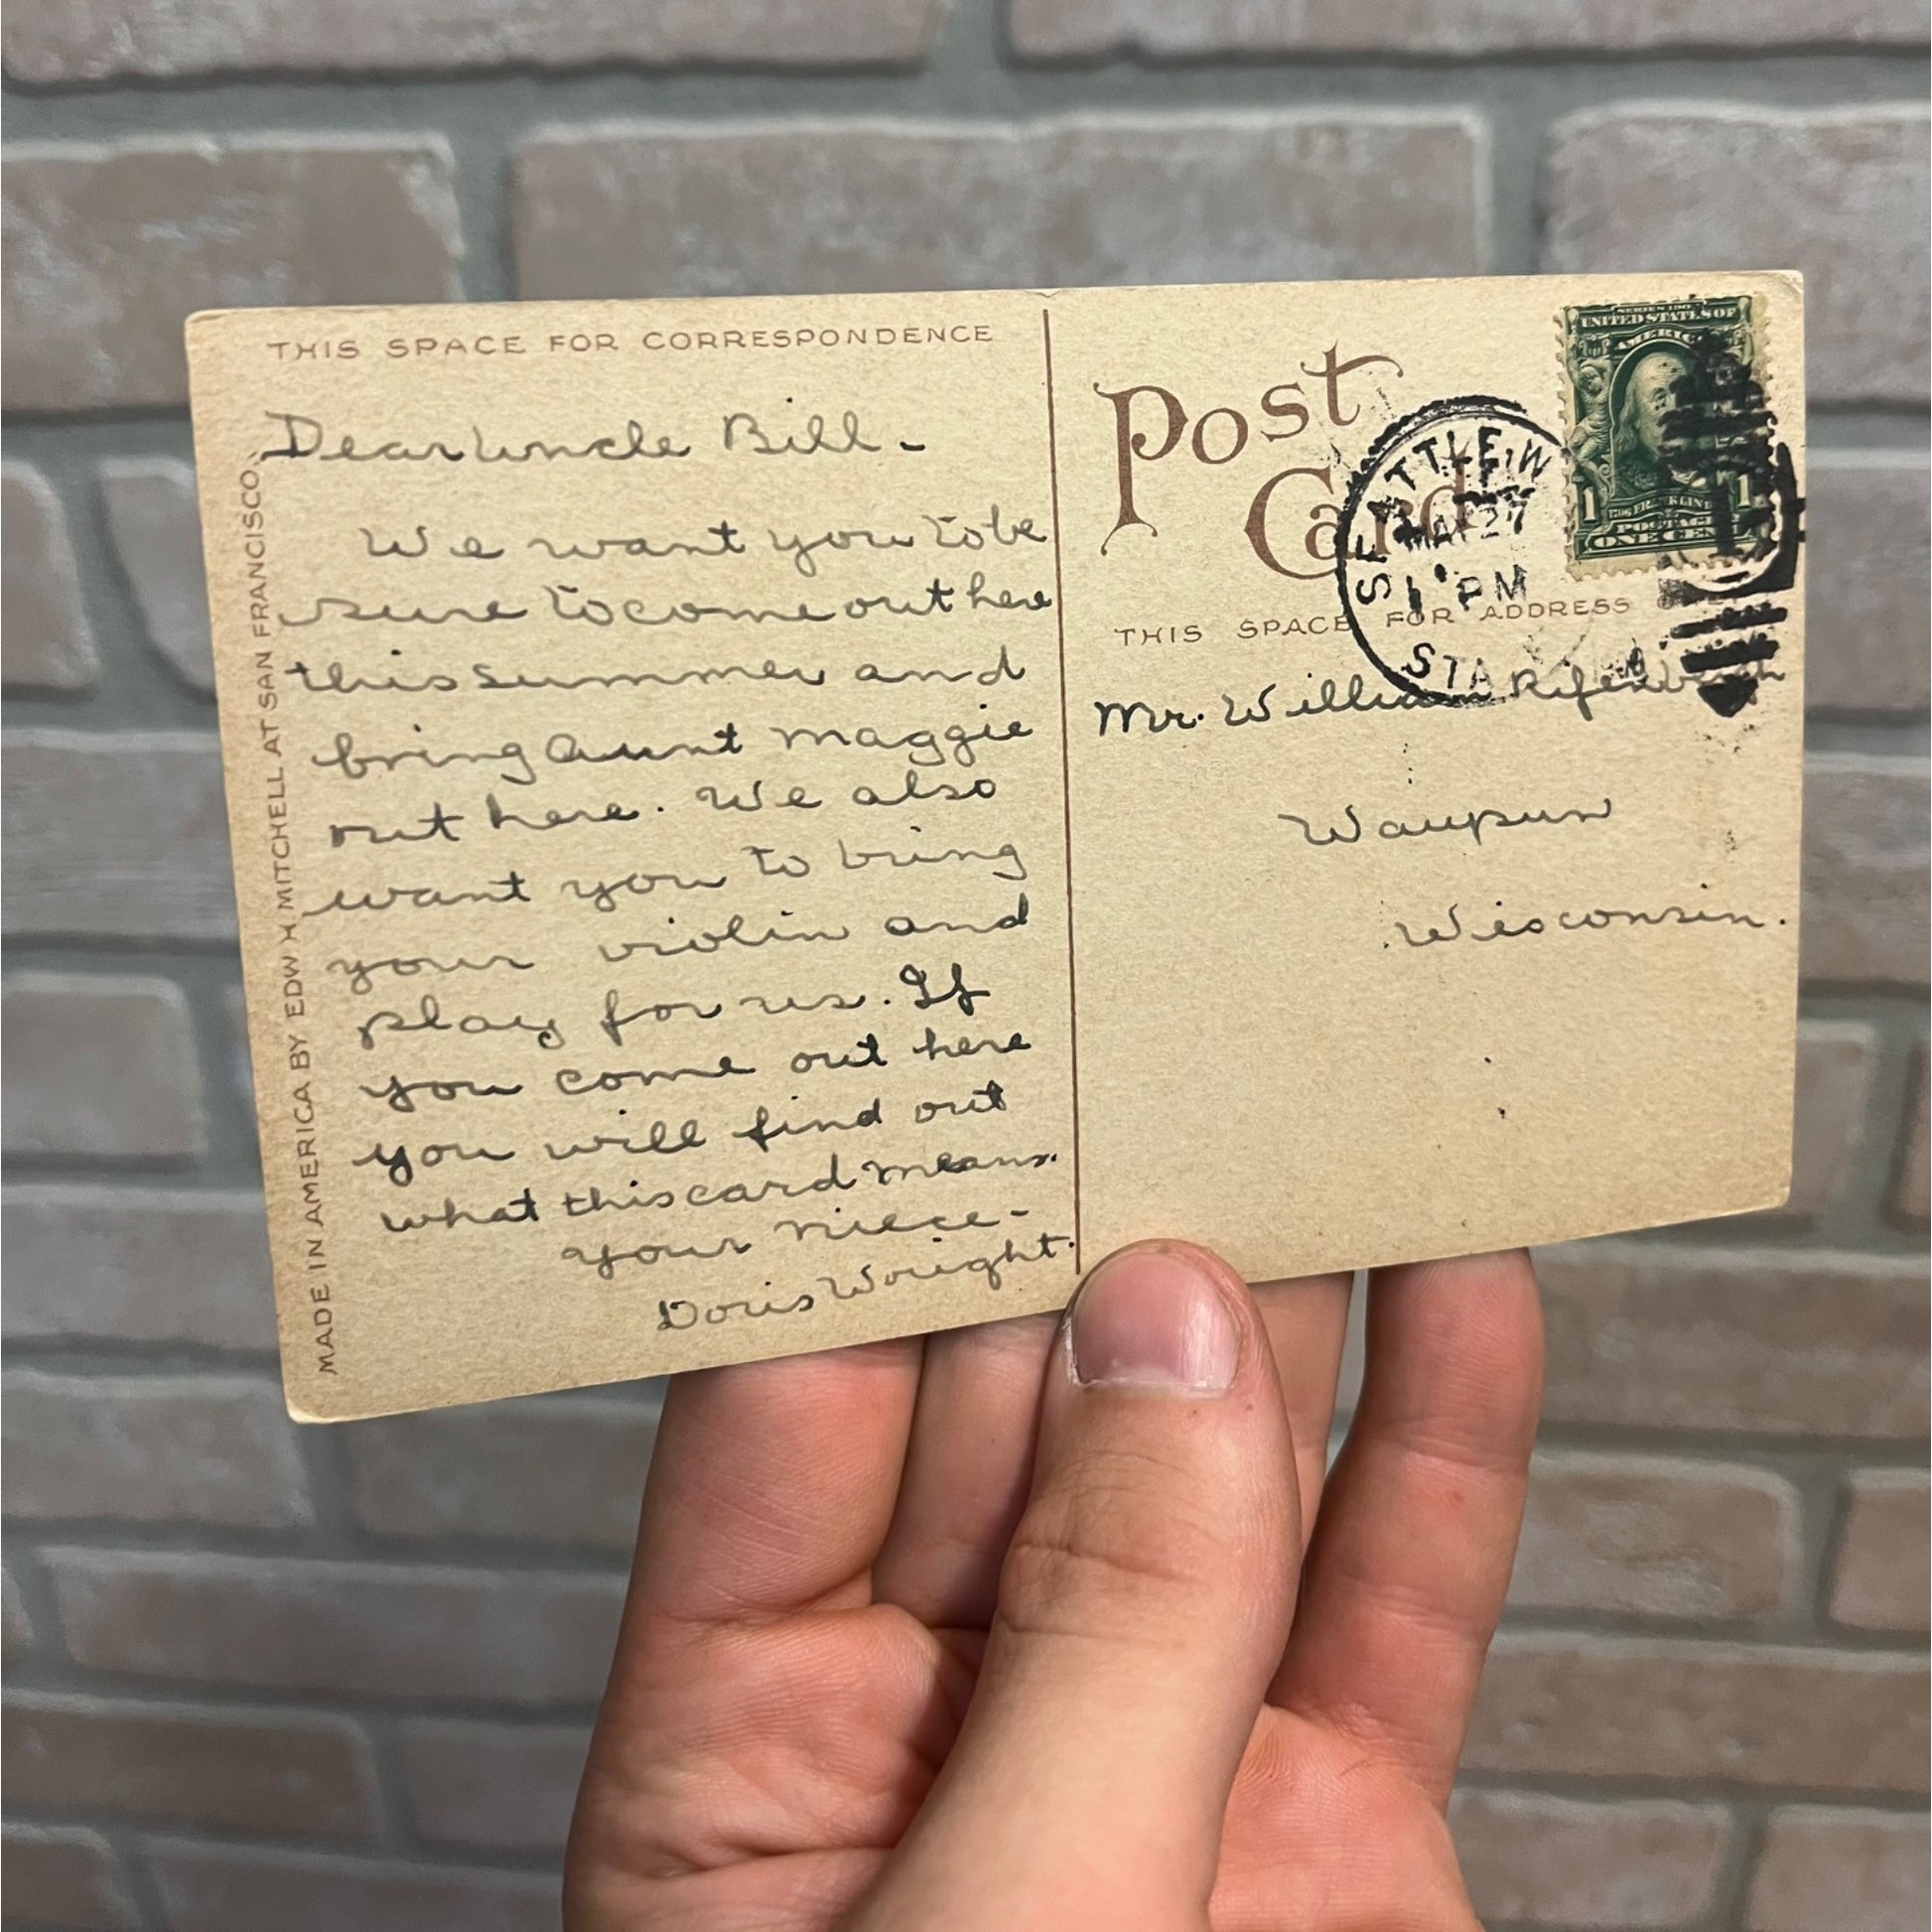 THIS SPACE FOR CORRESPONDENCE
Dear Uncle Bill -
We want you to be
sure to come out here
this summer and
bring Aunt Maggie
out here. We also
want you to bring
your violin and
play for us. If
you come out here
you will find out
what this card means.
your niece -
Doris Wright.
MADE IN AMERICA BY EDW H MITCHELL AT SAN FRANCISCO.
Post
Card
THIS SPACE FOR ADDRESS
Mr. William
Waupun
Wisconsin.
SEATTLE, W
27
1 PM
STA
UNITED STATES OF
AMERICA
1 1
FRANKLIN
POSTAGE
ONE CENT